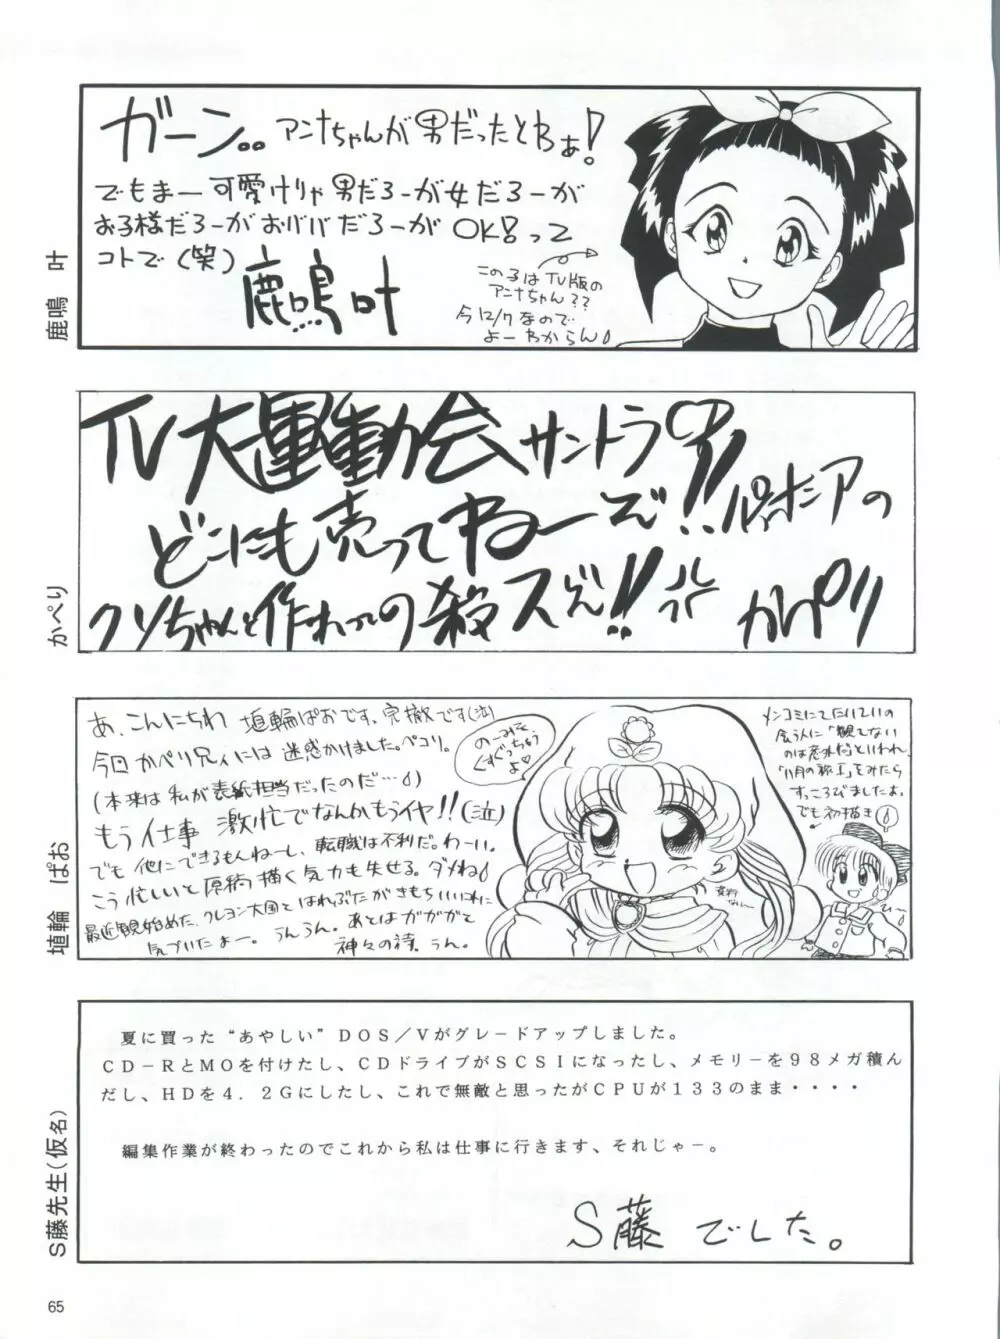 ガーン.. アンナちゃんが男だったとわぁ!
でもまー可愛けりゃ男だろーが女だろーが
お子様だろーがおババだろーが OK!って
コトで(笑)
鹿鳴叶
この子はTV版の
アンナちゃん??
今12/7なので…
よーわからん
鹿鳴 叶
TV大運動会サントラ
どこにも売ってねーぞ!!パイオニアの
クソちゃんと作れっての殺スぞ!!
かぺり
かぺり
あ、こんにちわ 埴輪ぱおです、完徹です(泣)
今回かぺり兄ィには迷惑かけました。ペコリ。
(本来は私が表紙担当だったのだ…)
もう仕事激忙でなんかもうイヤ!!(泣)
でも他にできるもんねーし、転職は不利だ。わーい。
こう忙しいと原稿描く気力も失せる。ダメね
最近観始めた、クレヨン大国と はれぶたがきもちいいわに
気づいたよー。うんうん。あとはガガガと
神々の詩、うん。
のーみそ
くすぐっちゃう
よ♡
資料
ない〜
メンコミにてたいていの
会う人に「観てない
のは意外」といわれ
をみたら
すっころびましたよ。
でも初描き
埴輪 ぱお
夏に買った“あやしい”DOS/Vがグレードアップしました。
CD-RとMOを付けたし、CDドライブがSCSIになったし、メモリーを98メガ積ん
だし、HDを4.2Gにしたし、これで無敵と思ったがCPUが133のまま・・・・
編集作業が終わったのでこれから私は仕事に行きます、それじゃー。
S藤 でした。
S藤先生(仮名)
65